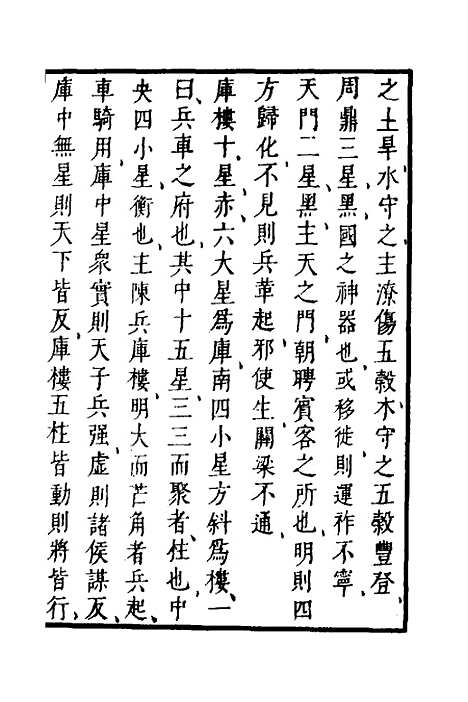 之土旱水守之主潦傷五穀木守之五穀豐登
周鼎三星黑國之神器也或移徙則運祚不寧
天門二星黑主天之門朝聘賓客之所也明則四
方歸化不見則兵革起邪使生關梁不通
庫樓十星赤六大星爲庫南四小星方斜爲樓一
曰兵車之府也其中十五星三三而聚者柱也中
央四小星衡也主陳兵庫樓明大而芒角者兵起
車騎用庫中星衆實則天子兵强虛則諸侯謀反
庫中無星則天下皆反庫樓五柱皆動則將皆行